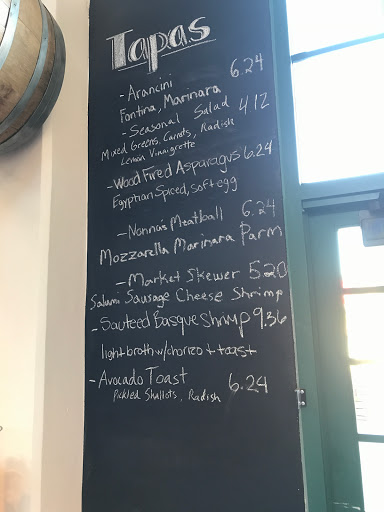 Tapas
- Arancini 6.24
Fontina, Marinara
- Seasonal Salad 4.12
Mixed Greens, Carrots, Radish
Lemon Vinaigrette
- Wood Fired Asparagus 6.24
Egyptian Spiced, soft egg
- Nonna's Meatball 6.24
Mozzarella Marinara Parm
- Market Skewer 5.20
Salami Sausage Cheese Shrimp
- Sauteed Basque Shrimp 9.36
light broth w/ chorizo + toast
- Avocado Toast 6.24
Pickled Shallots, Radish